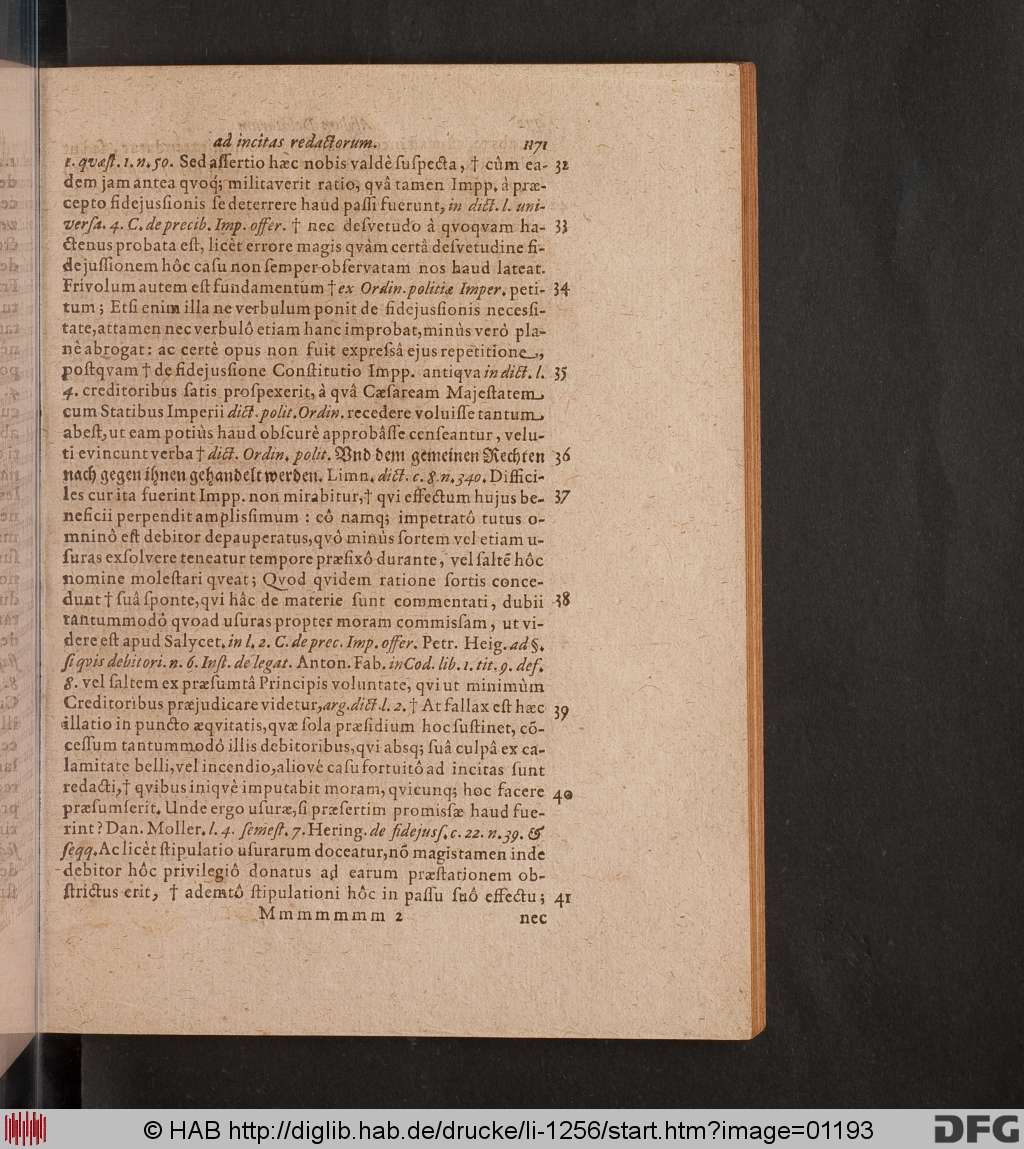 ad incitas redactorum. 1171
1. quæſt. 1. n. 50. Sed aſſertio hæc nobis valdè ſuſpecta, † cùm ea- 32
dem jam antea qvoq; militaverit ratio, qvâ tamen Impp. à præ-
cepto fidejusſionis ſe deterrere haud paſſi fuerunt, in dict. l. uni-
verſa. 4. C. de precib. Imp. offer. † nec deſvetudo à qvoqvam ha- 33
ctenus probata eſt, licèt errore magis qvàm certâ deſvetudine fi-
dejuſſionem hôc caſu non ſemper obſervatam nos haud lateat.
Frivolum autem eſt fundamentum † ex Ordin. politiæ Imper. peti- 34
tum; Etſi enim illa ne verbulum ponit de fidejusſionis necesſi-
tate, attamen nec verbulô etiam hanc improbat, minùs verò pla-
nè abrogat: ac certè opus non fuit expreſsâ ejus repetitione,
poſtqvam † de fidejusſione Conſtitutio Impp. antiqva in dict. l. 35
4. creditoribus ſatis proſpexerit, à qvâ Cæſaream Majeſtatem
cum Statibus Imperii dict. polit. Ordin. recedere voluiſſe tantum
abeſt, ut eam potiùs haud obſcurè approbâſſe cenſeantur, velu-
ti evincunt verba † dict. Ordin. polit. Vnd dem gemeinen Rechten 36
nach gegen ihnen gehandelt werden. Limn. dict. c. 8. n. 340. Diffici-
les cur ita fuerint Impp. non mirabitur, † qvi effectum hujus be- 37
neficii perpendit amplisſimum : cô namq; impetratô tutus o-
mninò eſt debitor depauperatus, qvò minùs ſortem vel etiam u-
ſuras exſolvere teneatur tempore præfixô durante, vel ſaltē hôc
nomine moleſtari qveat; Qvod qvidem ratione ſortis conce-
dunt † ſuâ ſponte, qvi hâc de materie ſunt commentati, dubii 38
tantummodò qvoad uſuras propter moram commisſam, ut vi-
dere eſt apud Salycet. in l. 2. C. de prec. Imp. offer. Petr. Heig. ad §.
ſi qvis debitori. n. 6. Inſt. de legat. Anton. Fab. in Cod. lib. 1. tit. 9. def.
8. vel ſaltem ex præſumtâ Principis voluntate, qvi ut minimùm
Creditoribus præjudicare videtur, arg. dict. l. 2. † At fallax eſt hæc 39
illatio in puncto æqvitatis, qvæ ſola præſidium hoc ſuſtinet, cō-
ceſſum tantummodò illis debitoribus, qvi absq; ſuâ culpâ ex ca-
lamitate belli, vel incendio, aliovè caſu fortuitô ad incitas ſunt
redacti, † qvibus iniqvè imputabit moram, qvicunq; hoc facere 40
præſumſerit. Unde ergo uſuræ, ſi præſertim promisſæ haud fue-
rint? Dan. Moller. l. 4. ſemeſt. 7. Hering. de fidejuſſ. c. 22. n. 39. &
ſeqq. Ac licèt ſtipulatio uſurarum doceatur, nō magis tamen inde
debitor hôc privilegiô donatus ad earum præſtationem ob-
ſtrictus erit, † ademtô ſtipulationi hôc in paſſu ſuô effectu; 41
Mmmmmmm 2 nec
© HAB http://diglib.hab.de/drucke/li-1256/start.htm?image=01193
DFG